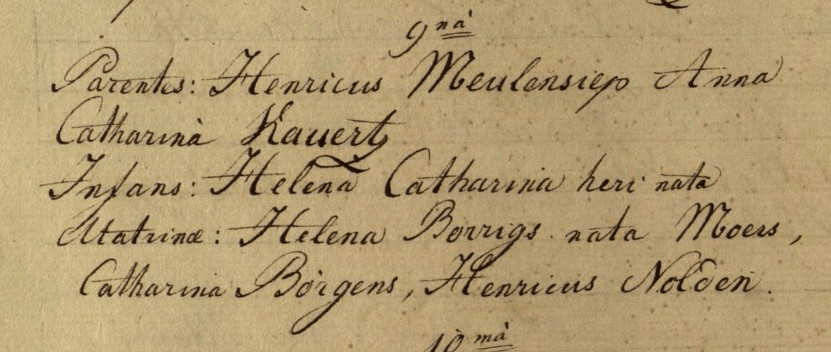 9nà
Parentes: Henricus Meulensiep Anna
Catharinà Kauertz
Infans: Helena Catharina heri nata
Matrinæ: Helena Borrigs nata Moers,
Catharina Börgens, Henricus Nolden.
10mà